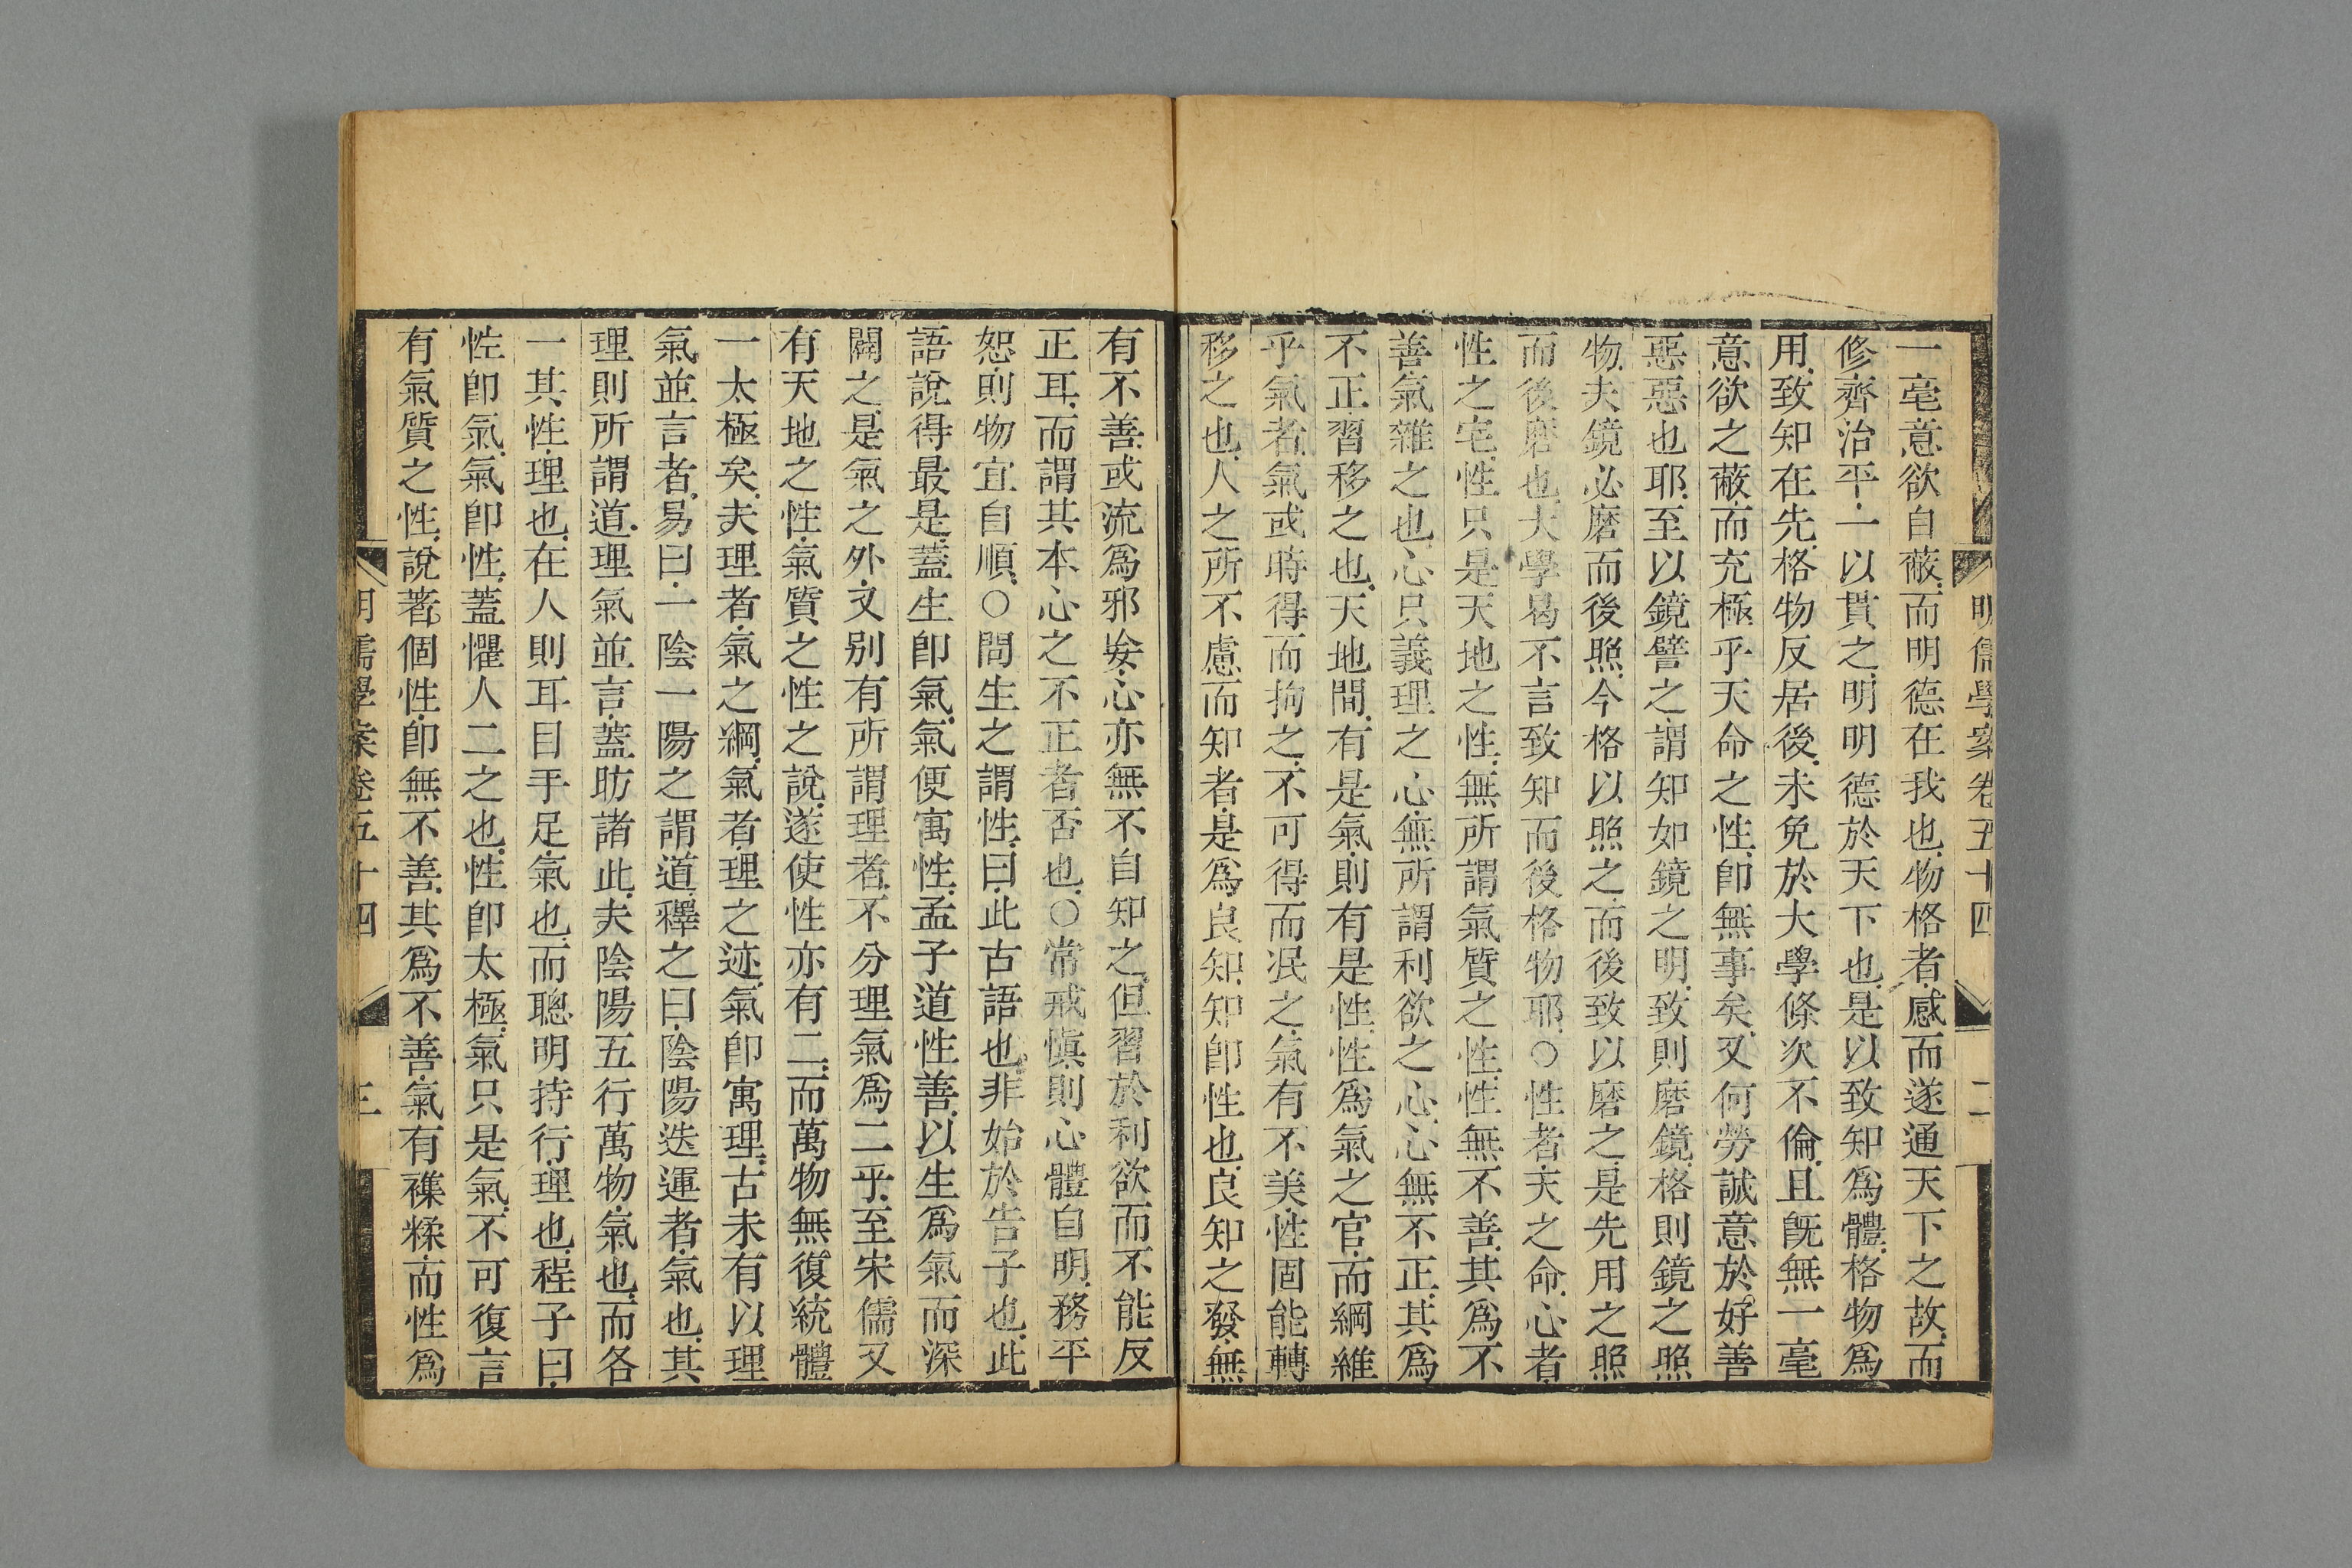 明儒學案卷五十四 二
一毫意欲自蔽而明德在我也物格者感而遂通天下之故而
修齊治平一以貫之明明德於天下也是以致知爲體格物爲
用致知在先格物反居後未免於大學條次不倫且既無一毫
意欲之蔽而充極乎天命之性即無事矣又何勞誠意於好善
惡惡也耶至以鏡譬之謂知如鏡之明致則磨鏡格則鏡之照
物夫鏡必磨而後照今格以照之而後致以磨之是先用之照
而後磨也大學曷不言致知而後格物耶○性者天之命心者
性之宅性只是天地之性無所謂氣質之性性無不善其爲不
善氣雜之也心只義理之心無所謂利欲之心心無不正其爲
不正習移之也天地間有是氣則有是性性爲氣之官而綱維
乎氣者氣或時得而拘之不可得而泯之氣有不美性固能轉
移之也人之所不慮而知者是爲良知知即性也良知之發無
有不善或流爲邪妄心亦無不自知之但習於利欲而不能反
正耳而謂其本心之不正者否也○常戒愼則心體自明務平
恕則物宜自順○問生之謂性曰此古語也非始於告子也此
語說得最是蓋生即氣氣便寓性孟子道性善以生爲氣而深
闢之是氣之外又别有所謂理者不分理氣爲二乎至宋儒又
有天地之性氣質之性之說遂使性亦有二而萬物無復統體
一太極矣夫理者氣之綱氣者理之迹氣即寓理古未有以理
氣並言者易曰一陰一陽之謂道釋之曰陰陽迭運者氣也其
理則所謂道理氣並言蓋昉諸此夫陰陽五行萬物氣也而各
一其性理也在人則耳目手足氣也而聰明持行理也程子曰
性即氣氣即性蓋懼人二之也性即太極氣只是氣不可復言
有氣質之性說著個性即無不善其爲不善氣有襍糅而性爲
明儒學案卷五十四 三